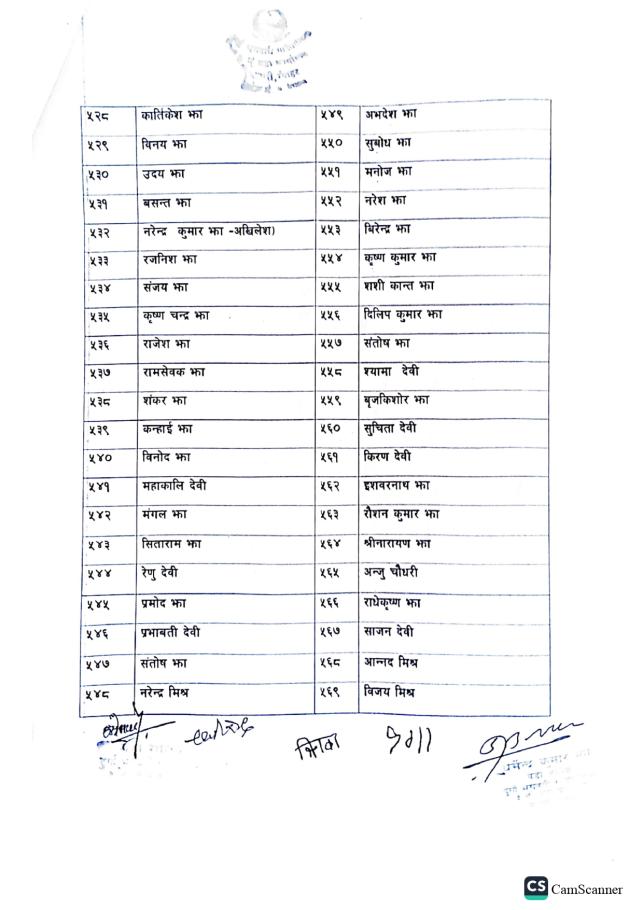 ५२८ कार्तिकेश झा ५४९ अभदेश झा
५२९ विनय झा ५५० सुबोध झा
५३० उदय झा ५५१ मनोज झा
५३१ बसन्त झा ५५२ नरेश झा
५३२ नरेन्द्र कुमार झा -अखिलेश) ५५३ बिरेन्द्र झा
५३३ रजनिश झा ५५४ कृष्ण कुमार झा
५३४ संजय झा ५५५ शशी कान्त झा
५३५ कृष्ण चन्द्र झा ५५६ दिलिप कुमार झा
५३६ राजेश झा ५५७ संतोष झा
५३७ रामसेवक झा ५५८ श्यामा देवी
५३८ शंकर झा ५५९ बृजकिशोर झा
५३९ कन्हाई झा ५६० सुचिता देवी
५४० विनोद झा ५६१ किरण देवी
५४१ महाकालि देवी ५६२ इशवरनाथ झा
५४२ मंगल झा ५६३ रौशन कुमार झा
५४३ सिताराम झा ५६४ श्रीनारायण झा
५४४ रेणु देवी ५६५ अन्जु चौधरी
५४५ प्रमोद झा ५६६ राधेकृष्ण झा
५४६ प्रभाबती देवी ५६७ साजन देवी
५४७ संतोष झा ५६८ आन्नद मिश्र
५४८ नरेन्द्र मिश्र ५६९ विजय मिश्र
धर्मेन्द्र कुमार झा
CS CamScanner